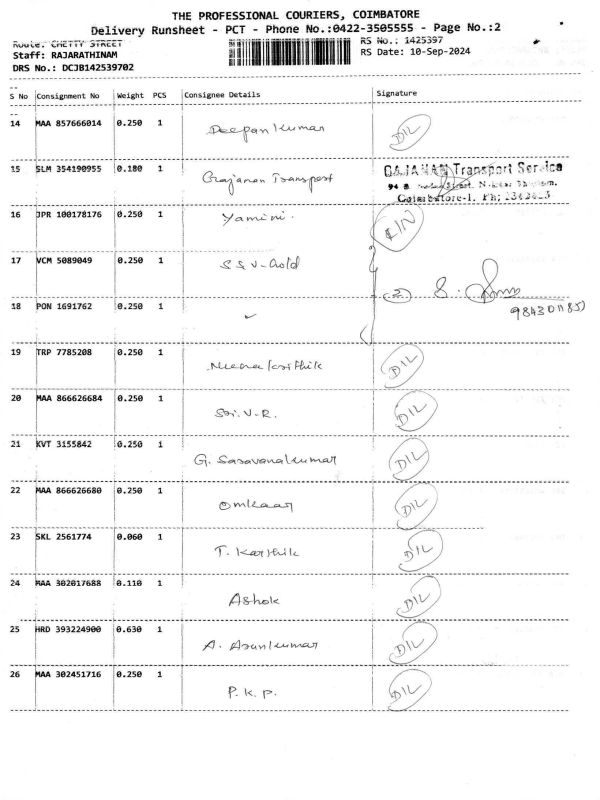 THE PROFESSIONAL COURIERS, COIMBATORE
Delivery Runsheet - PCT - Phone No.:0422-3505555 - Page No.:2
Route: CHETTY STREET RS No.: 1425397
Staff: RAJARATHINAM RS Date: 10-Sep-2024
DRS No.: DCJB142539702
S No Consignment No Weight PCS Consignee Details Signature
14 MAA 857666014 0.250 1 Deepan Kumar D/L
15 SLM 354190955 0.180 1 Gajanan Transport GAJANAN Transport Service
Coimbatore-1. Ph;
16 JPR 100178176 0.250 1 Yamini.
17 VCM 5089049 0.250 1 S S V-Gold
② S.
18 PON 1691762 0.250 1 ✓
19 TRP 7785208 0.250 1 D/L
20 MAA 866626684 0.250 1 Sri. V-R. D/L
21 KVT 3155842 0.250 1 G. Saravanakumar D/L
22 MAA 866626680 0.250 1 Omkaar D/L
23 SKL 2561774 0.060 1 T. Karthik D/L
24 MAA 302017688 0.110 1 Ashok D/L
25 HRD 393224900 0.630 1 A. Arunkumar D/L
26 MAA 302451716 0.250 1 P.K.P. D/L